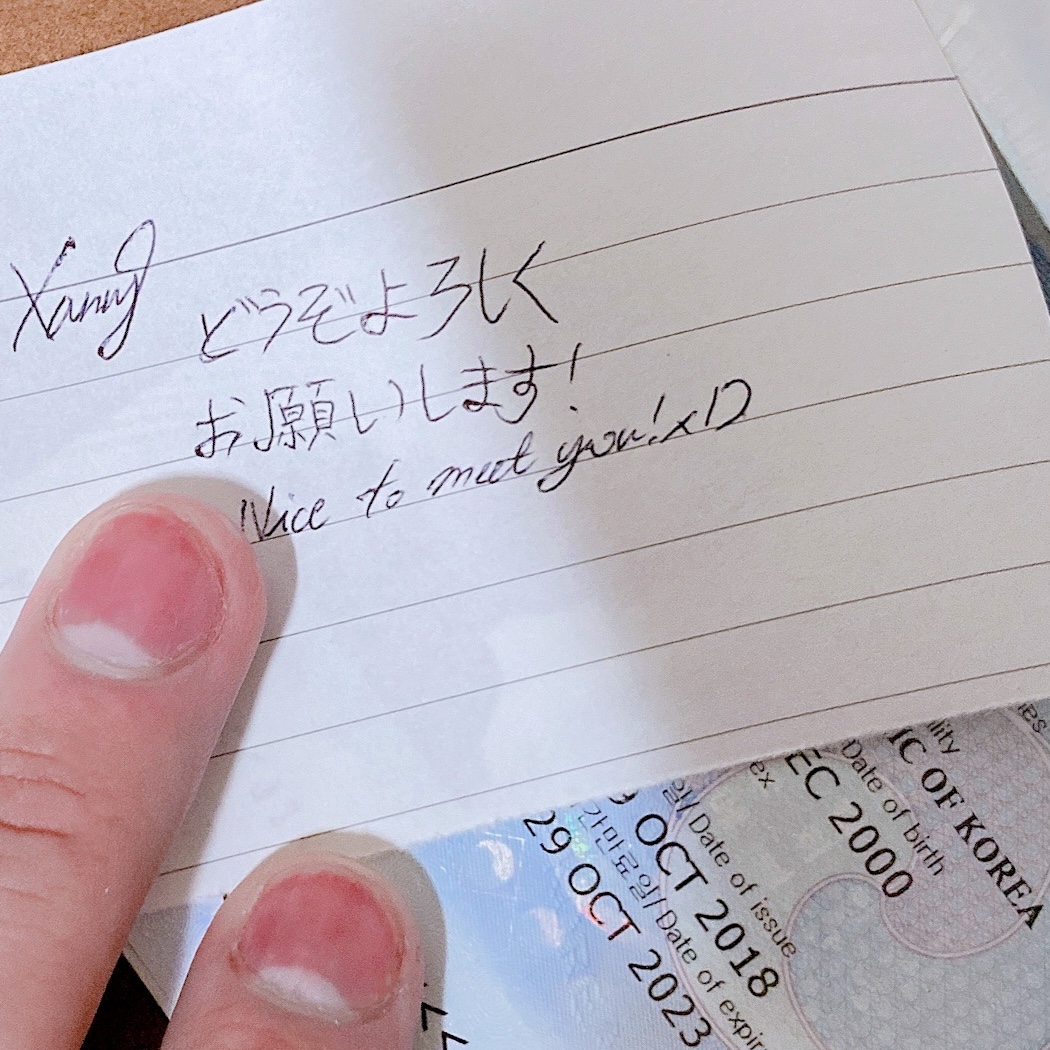 Xanny
どうぞよろしく
お願いします!
Nice to meet you! xD
IC OF KOREA
Date of birth
EC 2000
ex
일/ Date of issue
9 OCT 2018
간만료일/ Date of expir
29 OCT 2023